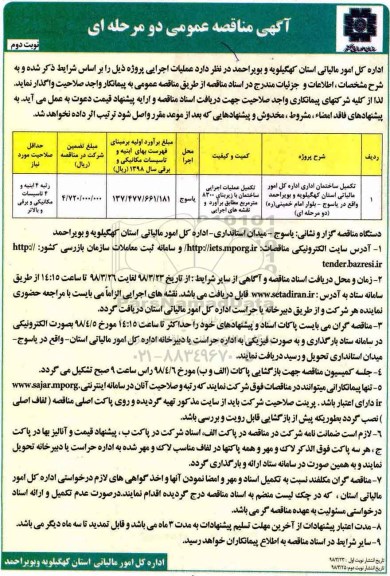 آگهی مناقصه عمومی دو مرحله ای
نوبت دوم
اداره کل امور مالیاتی استان کهگیلویه و بویراحمد در نظر دارد عملیات اجرایی پروژه ذیل را بر اساس شرایط ذکر شده و به
شرح مشخصات، اطلاعات و جزئیات مندرج در اسناد مناقصه از طریق مناقصه عمومی به پیمانکار واجد صلاحیت واگذار نماید.
لذا از کلیه شرکتهای پیمانکاری واجد صلاحیت جهت دریافت اسناد مناقصه و ارایه پیشنهاد قیمت دعوت به عمل می آید. به
پیشنهادهای فاقد امضاء، مشروط، مخدوش و پیشنهادهایی که بعد از موعد مقرر واصل شود ترتیب اثر داده نخواهد شد.
ردیف
شرح پروژه
کمیت و کیفیت
محل اجرا
مبلغ برآورد اولیه برمبنای فهرست بهای ابنیه و تاسیسات مکانیکی و برقی سال ۱۳۹۸ (ریال)
مبلغ تضمین شرکت در مناقصه (ریال)
حداقل صلاحیت مورد نیاز
۱
تکمیل ساختمان اداری اداره کل امور مالیاتی استان کهگیلویه و بویراحمد واقع در یاسوج - بلوار امام خمینی(ره) (دو مرحله ای)
تکمیل عملیات اجرایی ساختمان با زیربنای ۸۳۰۰ مترمربع مطابق برآورد و نقشه های اجرایی
یاسوج
۱۳۷/۴۷۷/۶۶۱/۱۸۱
۴/۷۲۰/۰۰۰/۰۰۰
رتبه ۴ ابنیه و ۴ تاسیسات مکانیکی و برقی و بالاتر
دستگاه مناقصه گزار و نشانی: یاسوج - میدان استانداری - اداره کل امور مالیاتی استان کهگیلویه و بویراحمد
۱- آدرس سایت الکترونیکی مناقصات: http://iets.mporg.ir/ و سامانه ثبت معاملات سازمان بازرسی کشور: http://
tender.bazresi.ir
۲- زمان و محل دریافت اسناد مناقصه و آگاهی از سایر شرایط: از تاریخ ۹۸/۳/۲۳ لغایت ۹۸/۳/۲۶ تا ساعت ۱۴:۱۵ از طریق
سامانه ستاد به آدرس: www.setadiran.ir قابل دریافت می باشد. نقشه های اجرایی الزاماً می بایست با مراجعه حضوری
نماینده هر شرکت و از طریق دبیرخانه یا حراست اداره کل امور مالیاتی استان دریافت گردد.
۳- مناقصه گران می بایست پاکات اسناد و پیشنهادهای خود را حداکثر تا ساعت ۱۴:۱۵ مورخ ۹۸/۴/۵ بصورت الکترونیکی
در سامانه ستاد بارگذاری و به صورت فیزیکی به اداره حراست یا دبیرخانه اداره کل امور مالیاتی استان - واقع در یاسوج-
میدان استانداری تحویل و رسید دریافت نمایند.
۴- جلسه کمیسیون مناقصه جهت بازگشایی پاکات (الف و ب) مورخ ۹۸/۴/۶ راس ساعت ۹ صبح تشکیل می گردد.
۵- تنها پیمانکارانی میتوانند در مناقصات فوق شرکت نمایند که رتبه و صلاحیت آنان در سامانه اینترنتی www.sajar.mporg.
ir دارای اعتبار باشد. پرینت صلاحیت شرکت باید از سایت مذکور تهیه گردیده و روی پاکت اصلی مناقصه (لفاف اصلی
) نصب گردد بطوریکه پیش از بازگشایی قابل رویت و بررسی باشد.
۶- لازم است ضمانت نامه شرکت در مناقصه در پاکت الف، اسناد شرکت در پاکت ب، پیشنهاد قیمت و آنالیز بها در پاکت
ج، هر سه پاکت فوق الذکر لاک و مهر و همه پاکتها در لفاف مناسب لاک و مهر شده به اداره حراست یا دبیرخانه تحویل
نمایند و به همین صورت در سامانه ستاد ارائه و بارگذاری گردد.
۷- مناقصه گران مکلفند نسبت به تکمیل اسناد و مهر و امضا نمودن آنها و اخذ گواهی های لازم درخواستی اداره کل امور
مالیاتی استان، که در چک لیست منضم به اسناد مناقصه درج گردیده اقدام نمایند. درصورت عدم تکمیل و ارائه اسناد
درخواستی مسئولیت به عهده مناقصه گر می باشد.
۸- مدت اعتبار پیشنهادات از آخرین مهلت تسلیم پیشنهادات به مدت ۳ ماه می باشد و قابل تمدید تا سه ماه دیگر می باشد.
۹- سایر شرایط در اسناد مناقصه به اطلاع پیمانکاران خواهد رسید.
تاریخ انتشار نوبت اول: ۹۸/۳/۲۳
تاریخ انتشار نوبت دوم: ۹۸/۳/۲۵
اداره کل امور مالیاتی استان کهگیلویه وبویراحمد
۰۲۱-۸۸۳۴۹۶۷۰